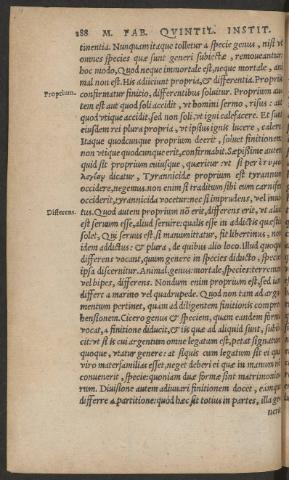 288 M. FAB. QVINTIL. INSTIT.
tinentia. Nunquam itaque tolletur a specie genus, nisi vt
omnes species quæ sunt generi subiectæ, remoueantur:
hoc modo, Quod neque immortale est, neque mortale, ani
mal non est. His adiiciunt propria, & differentia. Propriis
Proprium.
confirmatur finitio, differentibus soluitur. Proprium au
tem est aut quod soli accidit, vt homini sermo, risus: aut
quod vtique accidit, sed non soli, vt igni calefacere. Et sunt
eiusdem rei plura propria, vt ipsius ignis lucere, calere.
Itaque quodcunque proprium deerit, soluet finitionem:
non vtique quodcunque erit, confirmabit. Sæpissime autem
quid sit proprium cuiusque, quæritur: vt si per ἐτυμο
λογίαν dicatur, Tyrannicidæ proprium est tyrannum
occidere, negemus. non enim si traditum sibi eum carnifex
occiderit, tyrannicida vocetur: nec si imprudens, vel inui
Differens.
tus. Quod autem proprium nō erit, differens erit, vt aliud
est seruum esse, aliud seruire: qualis esse in addictis quæstio
solet, Qui seruus est, si manumittatur, fit libertinus, non
idem addictus: & plura, de quibus alio loco. Illud quoque
differens vocant, quum genere in species diducto, species
ipsa discernitur. Animal, genus: mortale, species: terrenum
vel bipes, differens. Nondum enim proprium est, sed iam
differt a marino vel quadrupede. Quod non tam ad argu
mentum pertinet, quam ad diligentem finitionis compre
hensionem. Cicero genus & speciem, quam eandem formam
vocat, a finitione diducit, & iis quæ ad aliquid sunt, subii
cit: vt si is cui argentum omne legatum est, petat signatum
quoque, vtatur genere: at siquis cum legatum sit ei quæ
viro materfamilias esset, neget deberi ei quæ in manum non
conuenerit, specie: quoniam duæ formæ sint matrimonio
rum. Diuisione autem adiuuari finitionem docet, eamque
differre a partitione: quòd hæc sit totius in partes, illa ge
neris